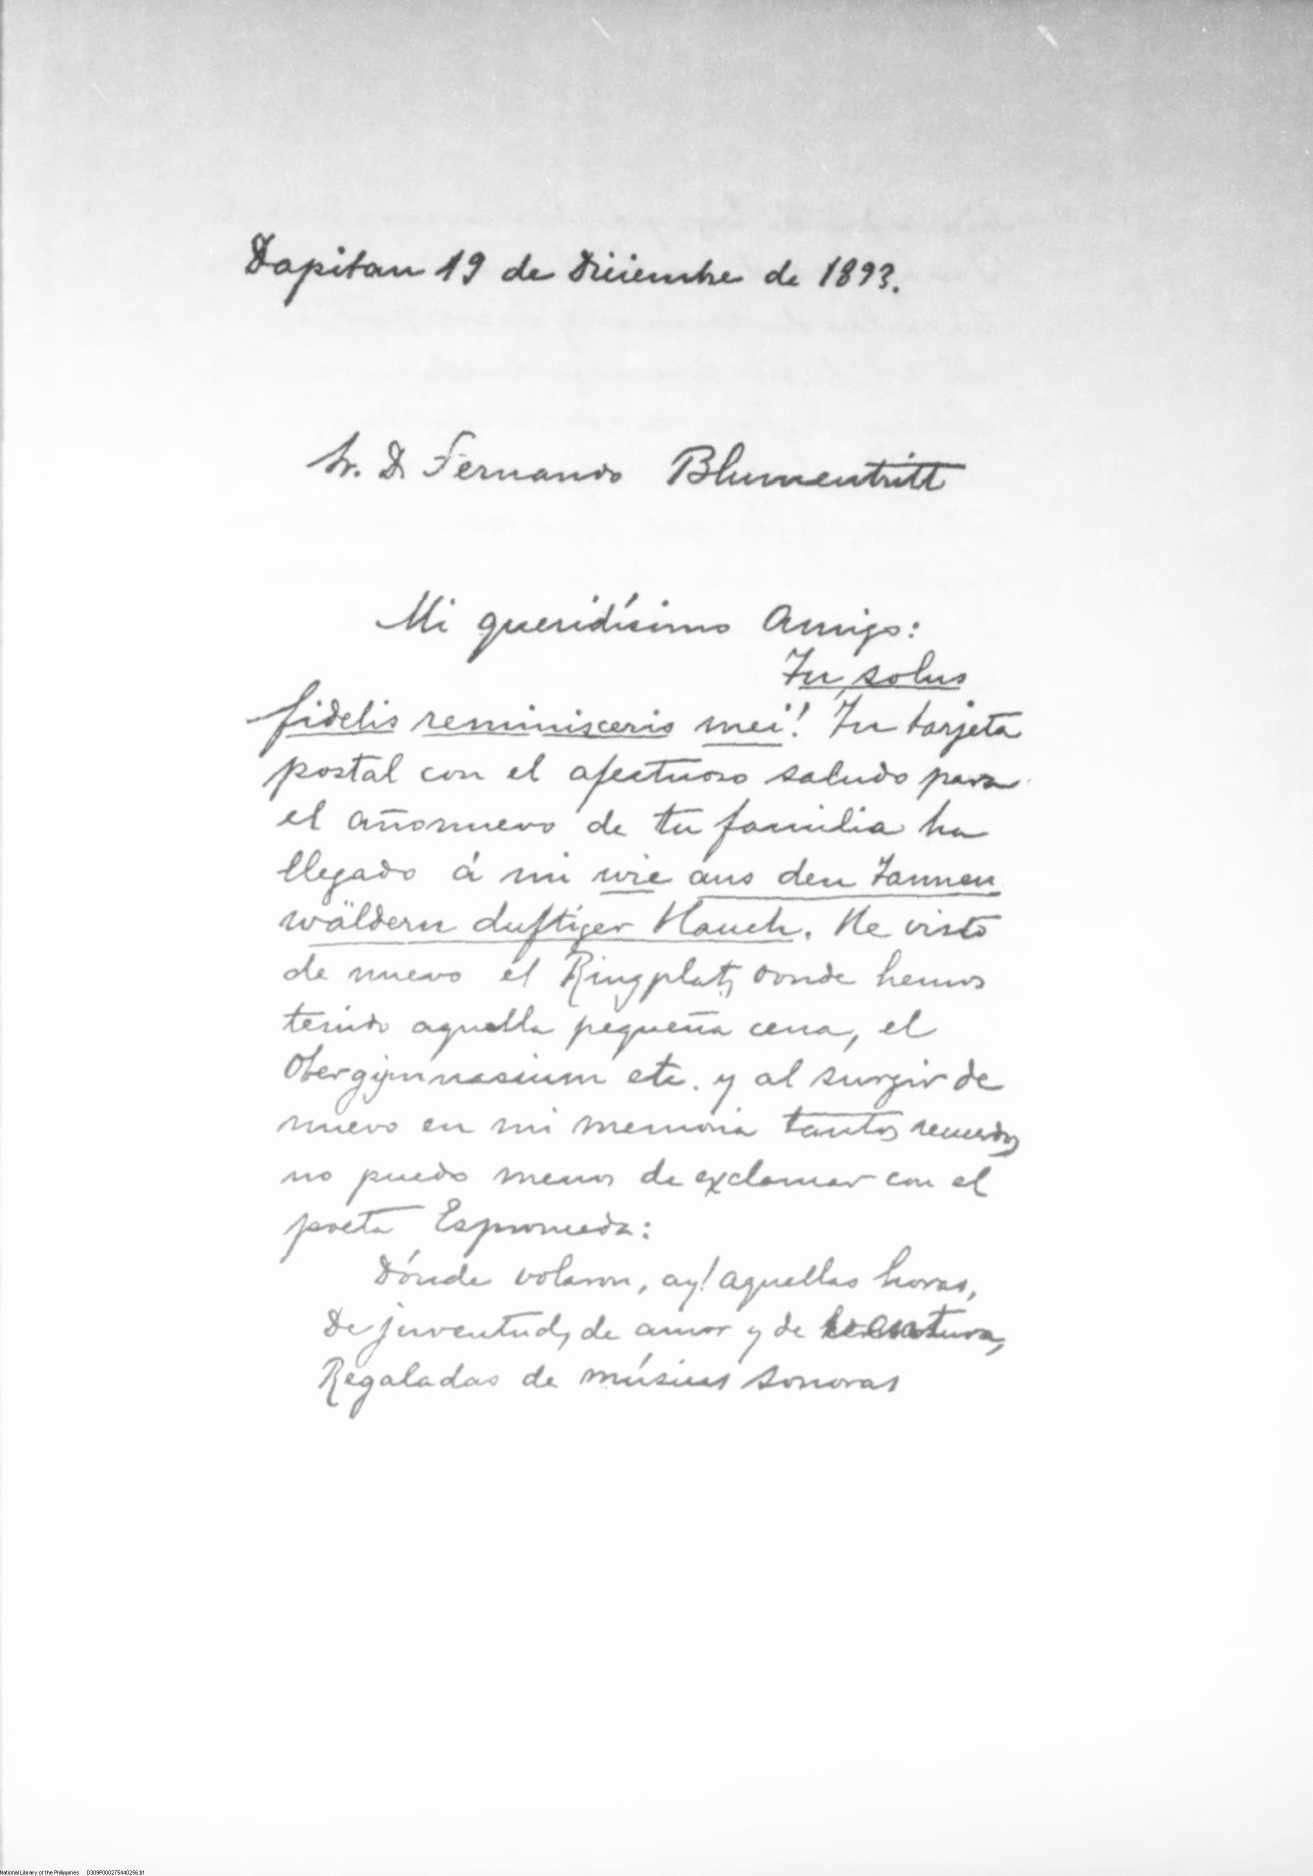 Dapitan 19 de Diciembre de 1893.
Sr. D. Fernando Blumentritt
Mi queridísimo Amigo:
Tu solus
fidelis reminisceris mei! Tu tarjeta
postal con el afectuoso saludo para
el añonuevo de tu familia ha
llegado á mi wie aus den Tannen
wäldern duftiger Hauch. He visto
de nuevo el Ringplatz donde hemos
tenido aquella pequeña cena, el
Obergymnasium etc. y al surgir de
nuevo en mi memoria tantos recuerdos
no puedo menos de exclamar con el
poeta Espronceda:
Dónde volaron, ay! aquellas horas,
De juventud, de amor y de ventura,
Regaladas de músicas sonoras
National Library of the Philippines D309P000275440256.tif